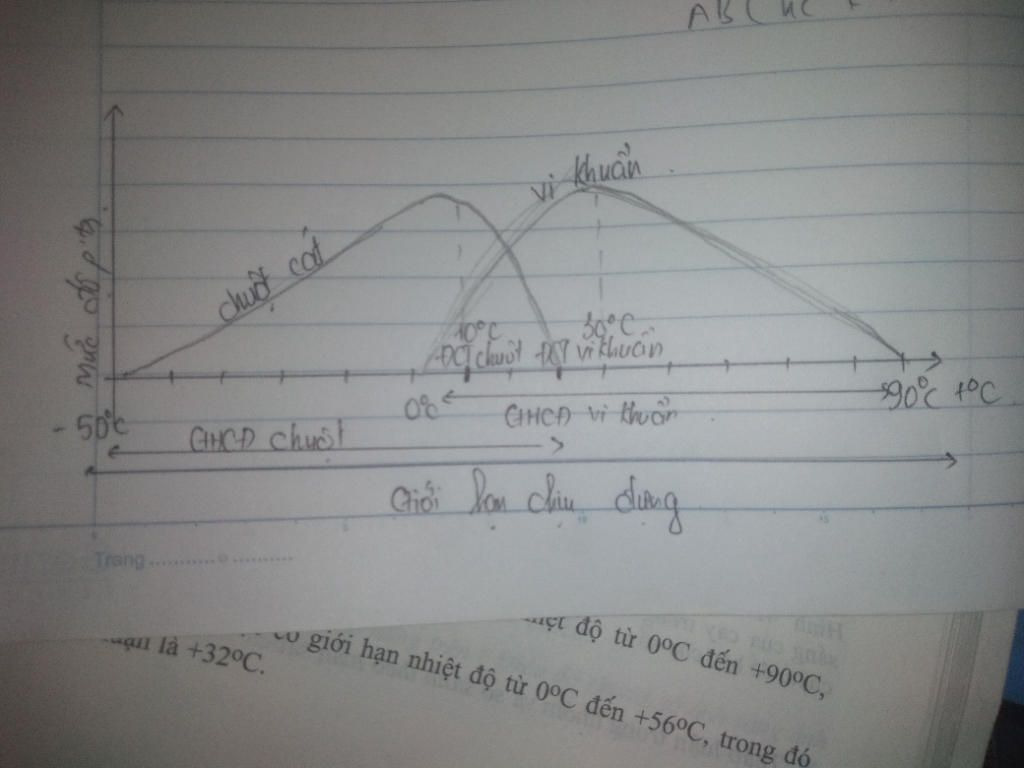 mức độ p.ứ.
chuột cát
vi khuẩn
10°C
ĐCT chuột
30°C
ĐCT vi khuẩn
- 50°C
0°C
90°C
t°C
GHCĐ vi khuẩn
GHCĐ chuột
Giới hạn chịu đựng
Trang
5
10
15
độ từ 0°C đến +90°C,
có giới hạn nhiệt độ từ 0°C đến +56°C, trong đó
là +32°C.